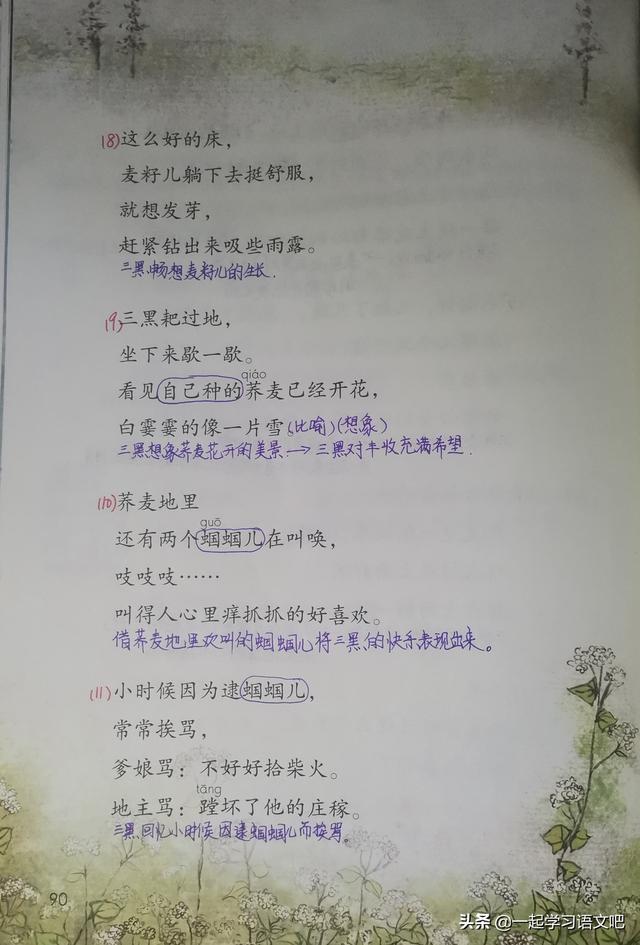 (8)这么好的床，
麦籽儿躺下去挺舒服，
就想发芽，
赶紧钻出来吸些雨露。
三黑畅想麦籽儿的生长.
(9)三黑耙过地，
坐下来歇一歇。
qiáo
看见自己种的荞麦已经开花，
白霎霎的像一片雪。(比喻)(想象)
三黑想象荞麦花开的美景→三黑对丰收充满希望.
(10)荞麦地里
guō
还有两个蝈蝈儿在叫唤，
吱吱吱……
叫得人心里痒抓抓的好喜欢。
借荞麦地里欢叫的蝈蝈儿将三黑的快乐表现出来。
(11)小时候因为逮蝈蝈儿，
常常挨骂，
爹娘骂：不好好拾柴火。
tāng
地主骂：蹚坏了他的庄稼。
三黑回忆小时候因逮蝈蝈儿而挨骂。
90
头条 @一起学习语文吧